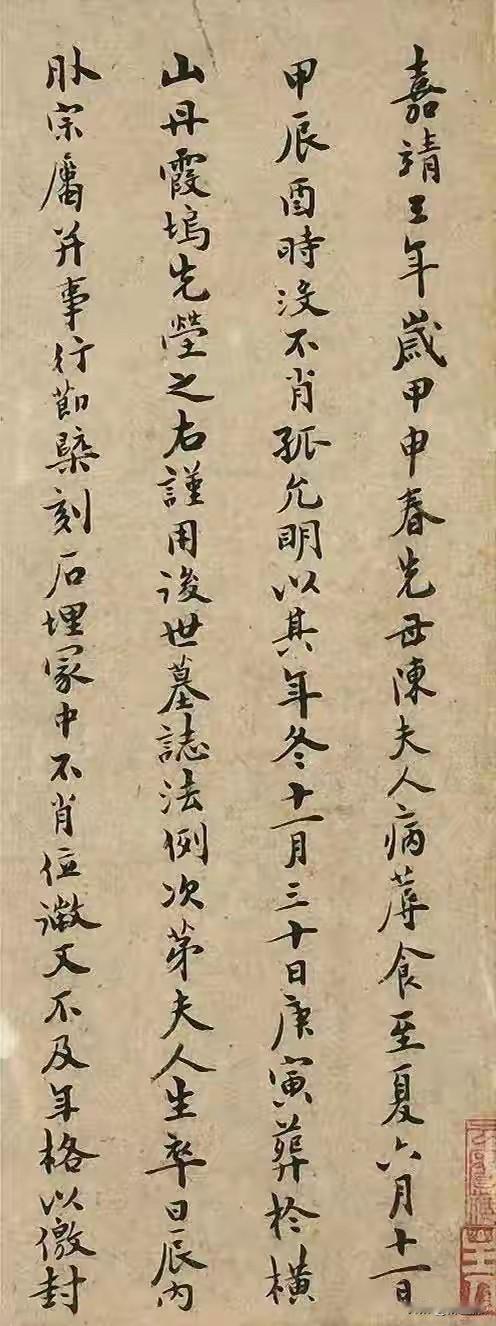 嘉靖三年歲甲申春先母陳夫人病蓐食至夏六月十一日
甲辰酉時沒不肖孤允明以其年冬十一月三十日庚寅葬於橫
山丹霞塢先塋之右謹用後世墓誌法例次第夫人生卒日辰內
外宗屬并事行節槩刻石埋冢中不肖位微又不及年格以徼封